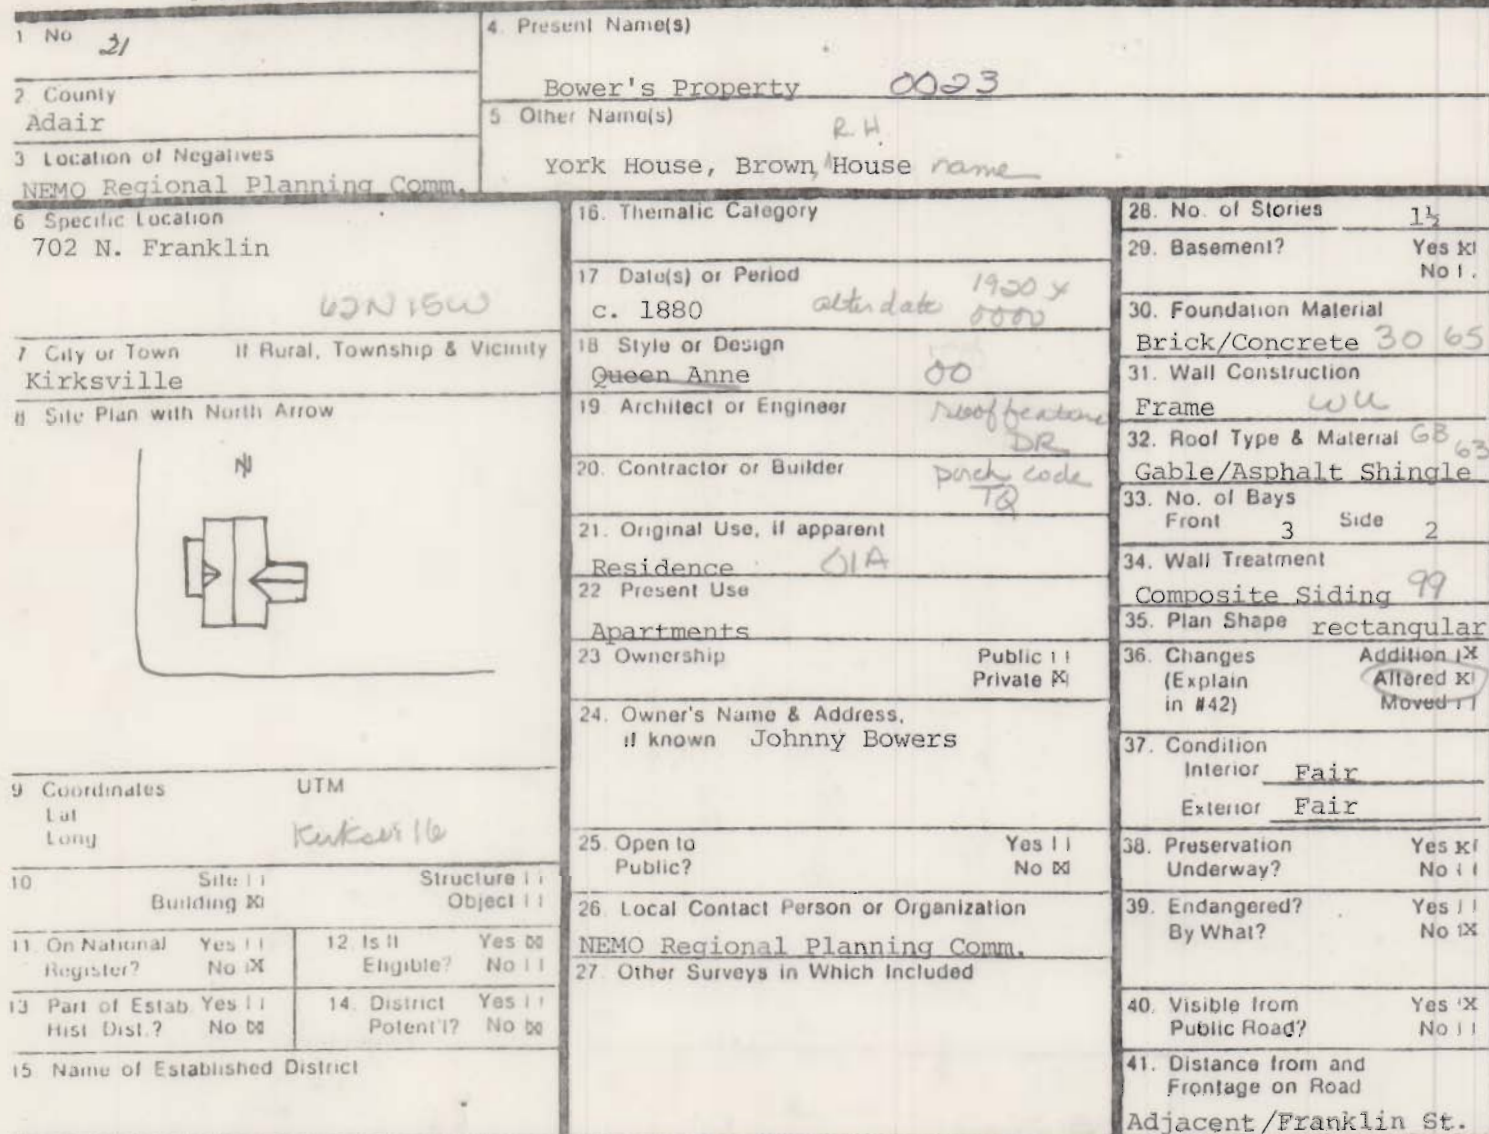 1 No 21
4. Present Name(s)
Bower's Property 0023
2 County
Adair
5 Other Name(s)
R.H.
York House, Brown House name
3 Location of Negatives
NEMO Regional Planning Comm.
6 Specific Location
702 N. Franklin
62N 15W
7 City or Town If Rural, Township & Vicinity
Kirksville
8 Site Plan with North Arrow
N
9 Coordinates UTM
Lat
Long
10 Site Structure
Building X Object
11. On National Register? Yes No X
12. Is It Eligible? Yes X No
13 Part of Estab Hist Dist.? Yes No X
14. District Potent'l? Yes No X
15 Name of Established District
16. Thematic Category
17 Date(s) or Period
c. 1880 alter date 1920 x
0000
18 Style or Design
Queen Anne 00
19. Architect or Engineer roof features
DR
20. Contractor or Builder porch code
TQ
21. Original Use, if apparent
Residence 01A
22 Present Use
Apartments
23 Ownership Public
Private X
24. Owner's Name & Address,
if known Johnny Bowers
25. Open to Yes
Public? No X
26. Local Contact Person or Organization
NEMO Regional Planning Comm.
27. Other Surveys in Which Included
28. No. of Stories 1½
29. Basement? Yes X
No
30. Foundation Material
Brick/Concrete 30 65
31. Wall Construction
Frame WU
32. Roof Type & Material GB 63
Gable/Asphalt Shingle
33. No. of Bays
Front 3 Side 2
34. Wall Treatment
Composite Siding 99
35. Plan Shape rectangular
36. Changes Addition X
(Explain Altered X
in #42) Moved
37. Condition
Interior Fair
Exterior Fair
38. Preservation Yes X
Underway? No
39. Endangered? Yes
By What? No X
40. Visible from Yes X
Public Road? No
41. Distance from and
Frontage on Road
Adjacent/Franklin St.